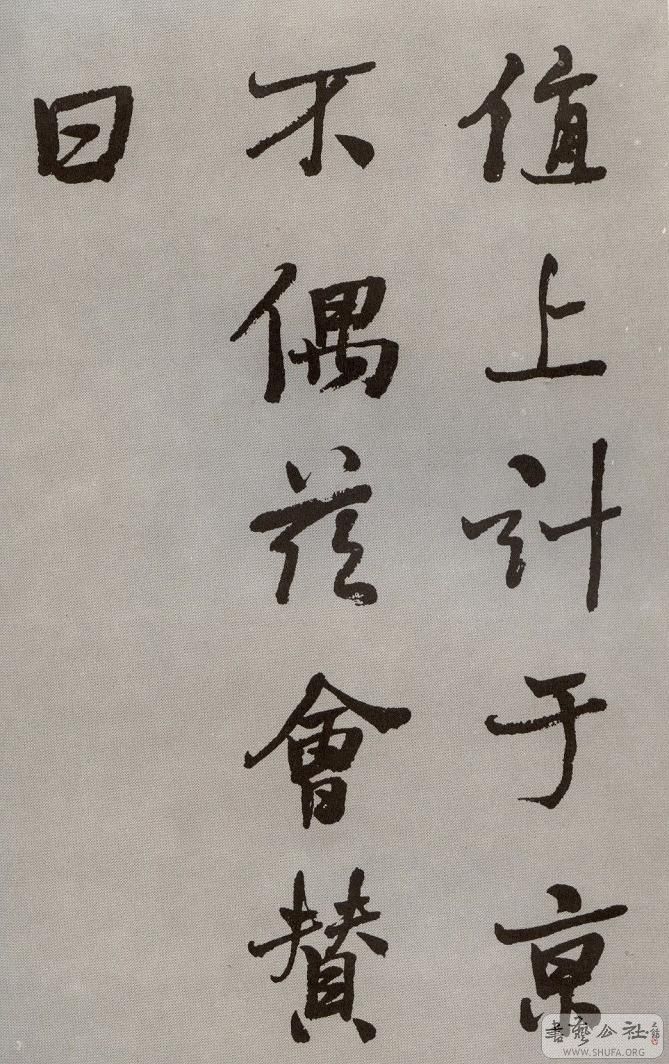 值上計于京
不偶茲會贊
曰
書藝公社
WWW.SHUFA.ORG